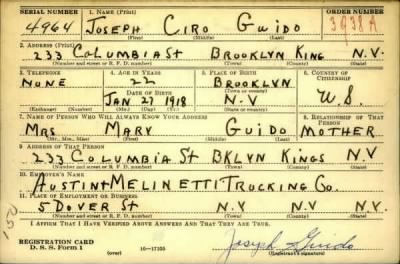 SERIAL NUMBER 1. NAME (Print) ORDER NUMBER
4964 JOSEPH CIRO GUIDO 3938A
(First) (Middle) (Last)
2. ADDRESS (Print)
233 COLUMBIA ST BROOKLYN KING N.Y.
(Number and street or R. F. D. number) (Town) (County) (State)
3. TELEPHONE 4. AGE IN YEARS 5. PLACE OF BIRTH 6. COUNTRY OF CITIZENSHIP
NONE 22 BROOKLYN
DATE OF BIRTH (Town or county)
JAN 27 1918 N.Y U.S.
(Exchange) (Number) (Mo.) (Day) (Yr.) (State or country)
7. NAME OF PERSON WHO WILL ALWAYS KNOW YOUR ADDRESS 8. RELATIONSHIP OF THAT PERSON
MRS. MARY GUIDO MOTHER
(Mr., Mrs., Miss) (First) (Middle) (Last)
9. ADDRESS OF THAT PERSON
233 COLUMBIA ST BKLYN KINGS N.Y
(Number and street or R. F. D. number) (Town) (County) (State)
10. EMPLOYER'S NAME
AUSTIN + MELINETTI TRUCKING CO.
11. PLACE OF EMPLOYMENT OR BUSINESS
5 DOVER ST N.Y N.Y N.Y.
(Number and street or R. F. D. number) (Town) (County) (State)
I AFFIRM THAT I HAVE VERIFIED ABOVE ANSWERS AND THAT THEY ARE TRUE.
REGISTRATION CARD
D. S. S. FORM 1 (over) 16—17105 Joseph Guido
(Registrant's signature)